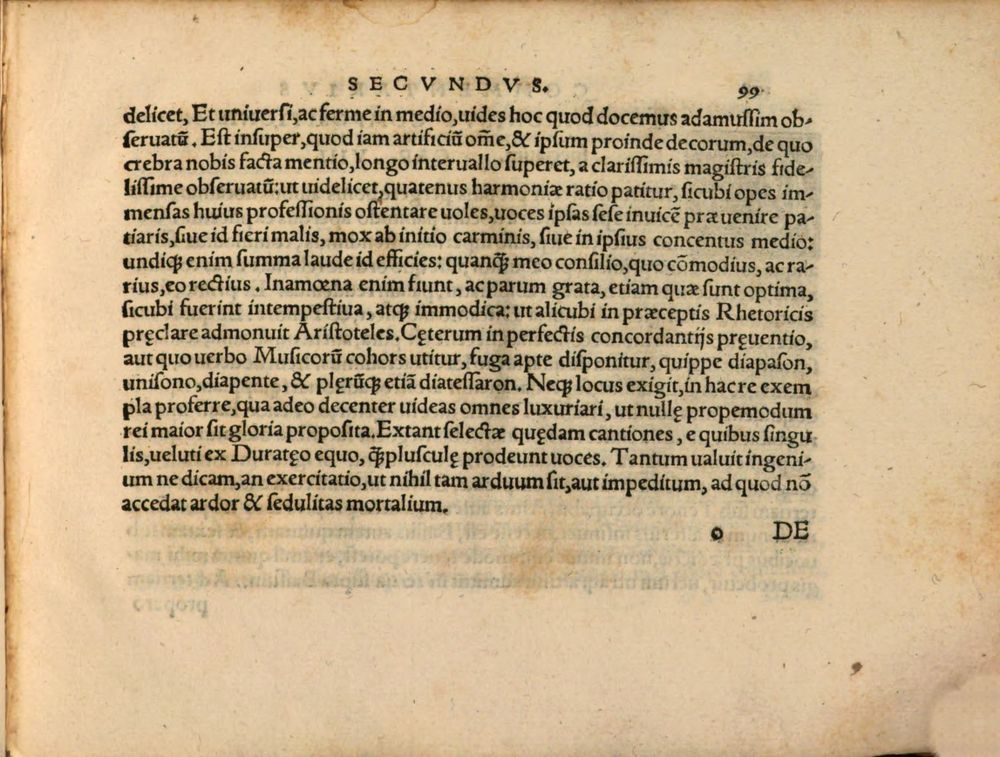 SECVNDVS. 99
delicet, Et uniuersi, ac ferme in medio, uides hoc quod docemus adamussim ob-
seruatũ. Est insuper, quod iam artificiũ om̃e, & ipsum proinde decorum, de quo
crebra nobis facta mentio, longo interuallo superet, a clarissimis magistris fide-
lissime obseruatũ: ut uidelicet, quatenus harmoniæ ratio patitur, sicubi opes im-
mensas huius professionis ostentare uoles, uoces ipsas sese inuicẽ præuenire pa-
tiaris, siue id fieri malis, mox ab initio carminis, siue in ipsius concentus medio:
undiqꝫ enim summa laude id efficies: quanqꝫ meo consilio, quo cõmodius, ac ra-
rius, eo rectius. Inamœna enim fiunt, ac parum grata, etiam quæ sunt optima,
sicubi fuerint intempestiua, atqꝫ immodica: ut alicubi in præceptis Rhetoricis
pręclare admonuit Aristoteles. Cęterum in perfectis concordantijs pręuentio,
aut quo uerbo Musicorũ cohors utitur, fuga apte disponitur, quippe diapason,
unisono, diapente, & plęrũqꝫ etiã diatessaron. Neqꝫ locus exigit, in hac re exem
pla proferre, qua adeo decenter uideas omnes luxuriari, ut nullę propemodum
rei maior sit gloria proposita. Extant selectæ quędam cantiones, e quibus singu
lis, ueluti ex Duratęo equo, q̃plusculę prodeunt uoces. Tantum ualuit ingeni-
um ne dicam, an exercitatio, ut nihil tam arduum sit, aut impeditum, ad quod nõ
accedat ardor & sedulitas mortalium.
o DE